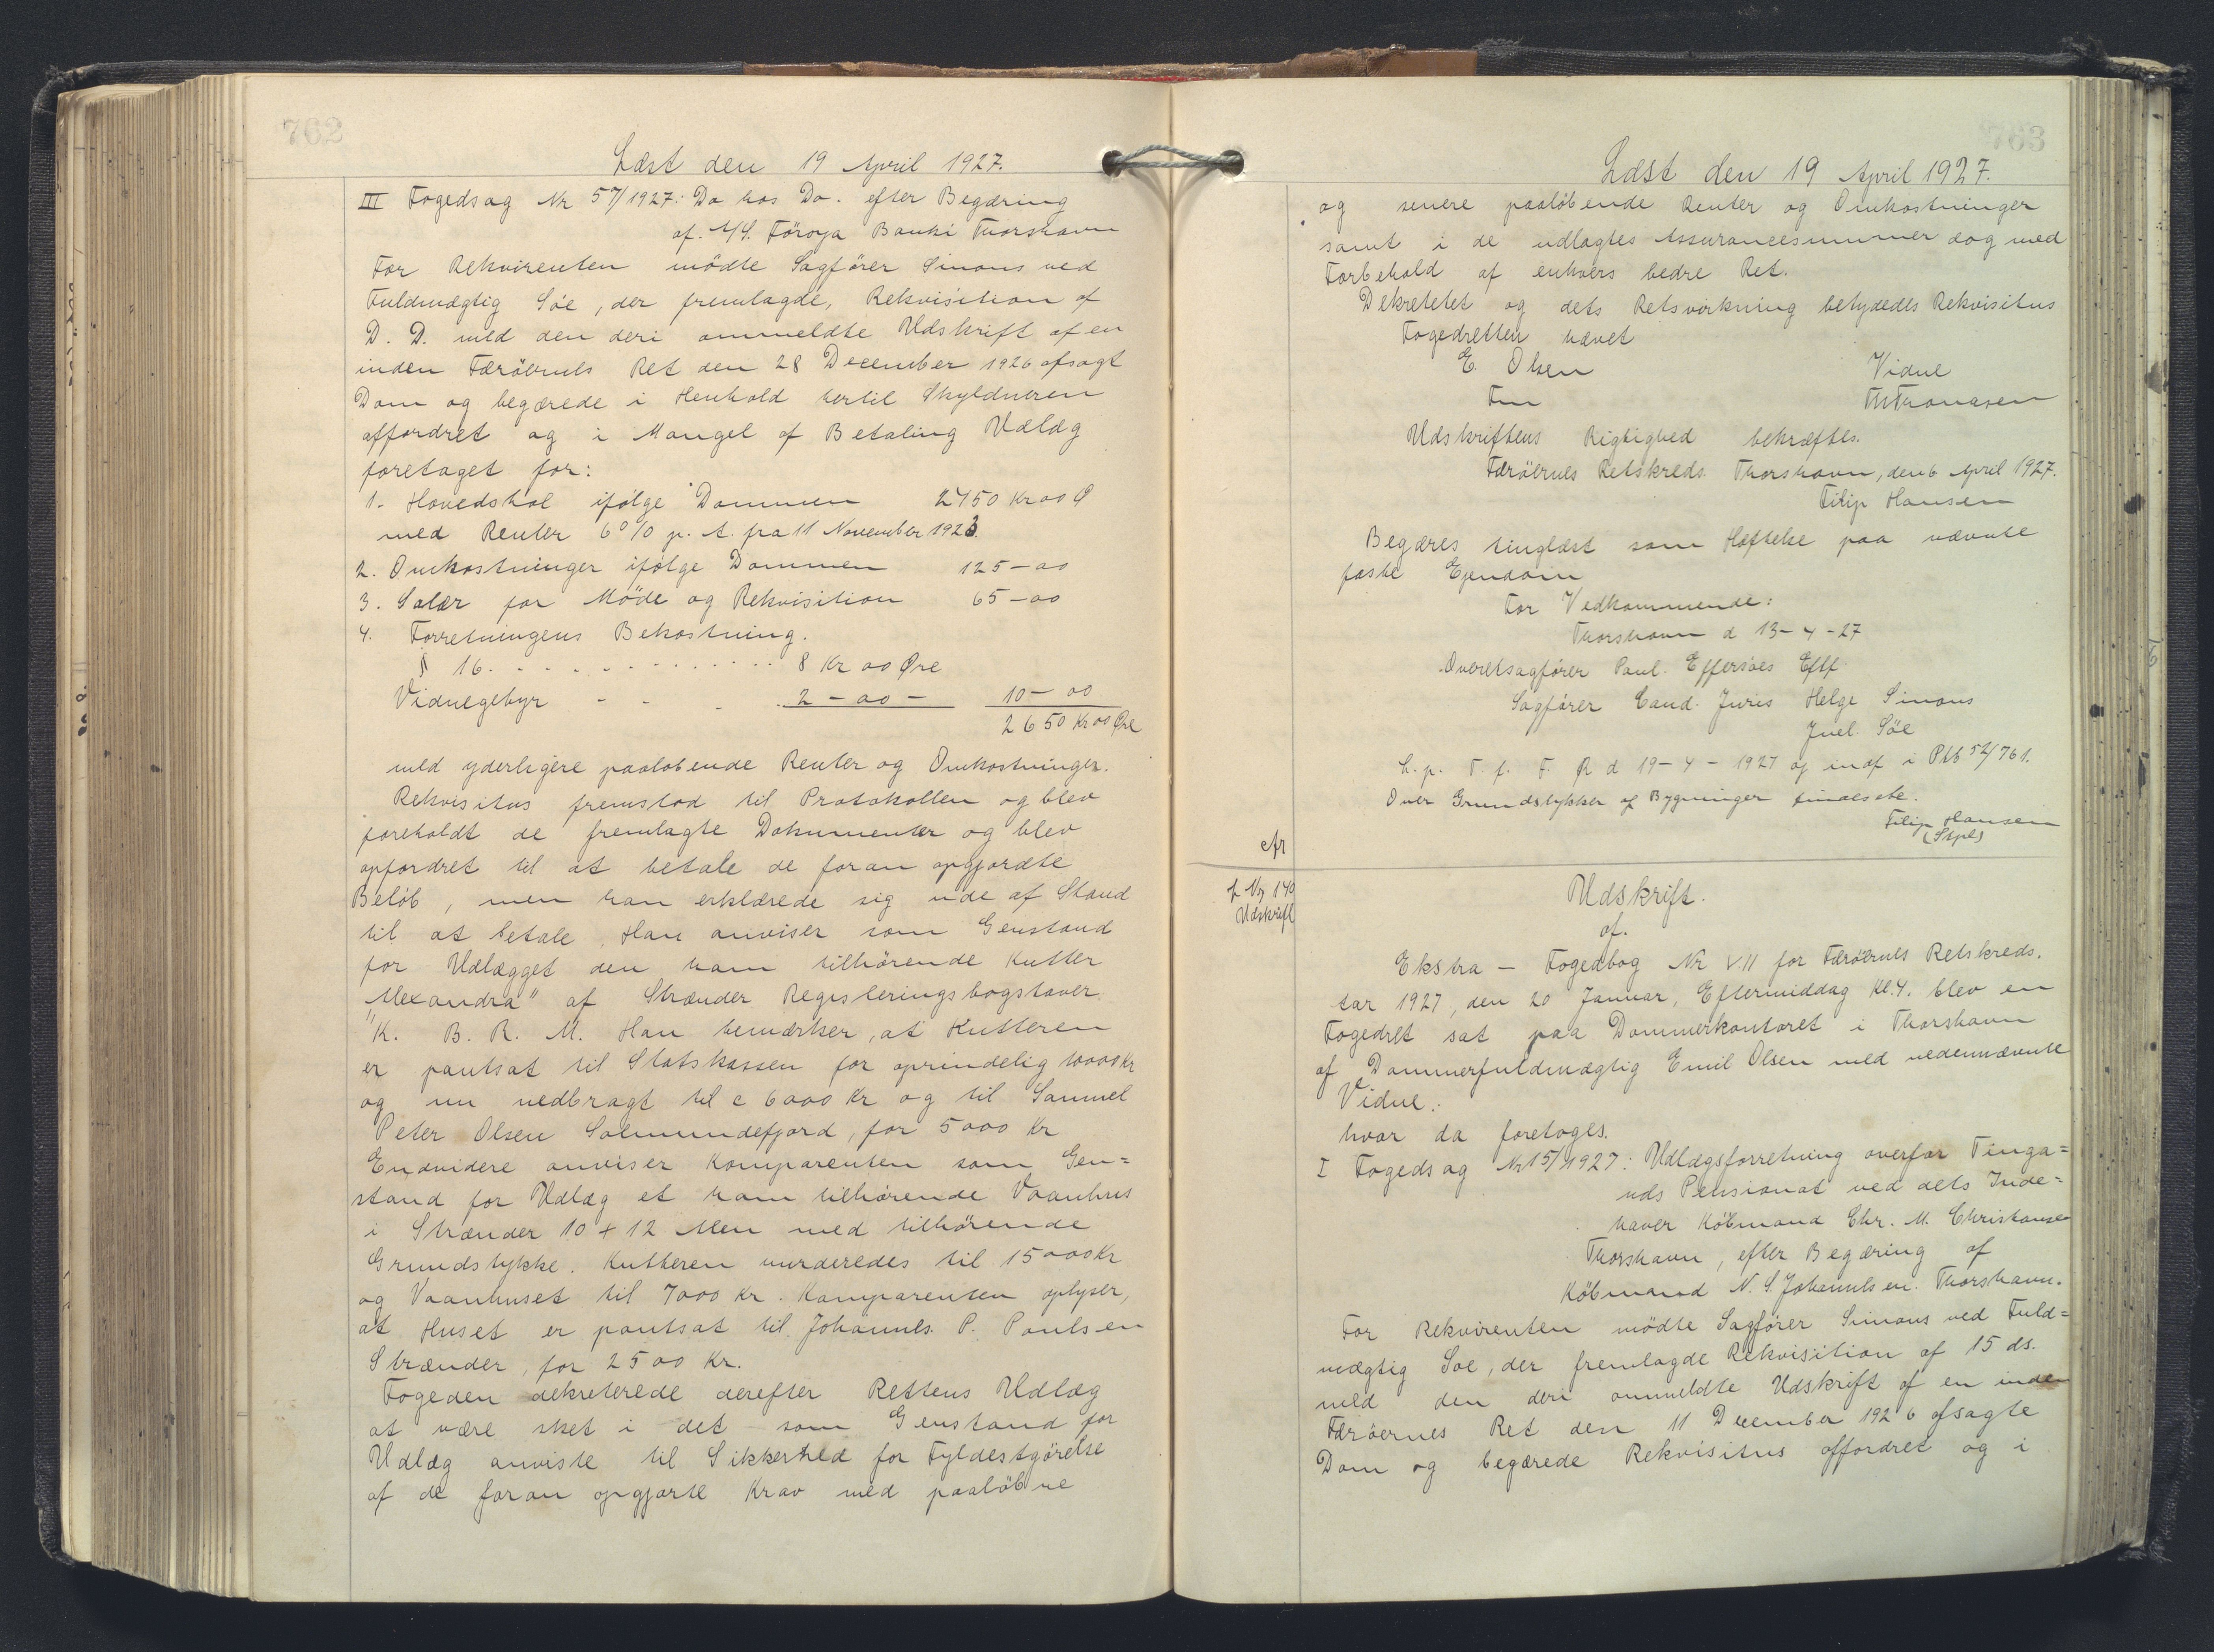 762
Læst den 19 April 1927.
III Fogedsag Nr 57/1927: Do hos Do. efter Begæring
af. A/S. Föroya Banki Thorshavn
For Rekvirenten mödte Sagfører Simons ved
Fuldmægtig Söe, der fremlagde, Rekvisition af
D. D. med den deri ommeldte Udskrift af en
inden Færöernes Ret den 28 December 1926 afsagt
Dom og begærede i Henhold hertil Skyldneren
affordret og i Mangel af Betaling Udlæg
foretaget for:
1. Hovedstol ifölge Dommen 2450 Kr 00 Ø
med Renter 6% p. A. fra 11 November 1923.
2. Omkostninger ifölge Dommen 125 – 00
3. Salær for Möde og Rekvisition 65 – 00
4. Forretningens Bekostning.
§ 16. - - - - - - - - - - 8 Kr 00 Øre
Vidnegebyr - - - 2 – 00 – 10 – 00
2650 Kr 00 Øre
med yderligere paalöbende Renter og Omkostninger.
Rekvisitus fremstod til Protokollen og blev
foreholdt de fremlagte Dokumenter og blev
opfordret til at betale de foran opgjordte
Belöb, men han erklærede sig ude af Stand
til at betale, Han anviser som Genstand
for Udlægget den ham tilhörende Kutter
"Alexandra" af Strænder Registeringsbogstaver
K. B. R. M. Han bemærker, at Kutteren
er pantsat til Statskassen for oprindelig 10000 Kr
og nu nedbragt til c 6000 Kr og til Samuel
Peter Olsen Solmundefjord, for 5000 Kr
Endvidere anviser Komparenten som Gen=
stand for Udlæg et ham tilhörende Vaanhus
i Strænder 10 + 12 Alen med tilhörende
Grundstykke. Kutteren vurderedes til 15000 Kr
og Vaanhuset til 7000 Kr. Komparenten oplyser,
at Huset er pantsat til Johannes. P. Poulsen
Strænder, for 2500 Kr.
Fogeden dekreterede derefter Rettens Udlæg
at være sket i det som Genstand for
Udlæg anviste til Sikkerhed for Fyldestgörelse
af de foran opgjorte Krav med paalöbne
763
Læst den 19 April 1927.
og senere paalöbende Renter og Omkostninger
samt i de udlagtes Assurancesummer dog med
Forbehold af enhvers bedre Ret.
Dekretetet og dets Retsvirkning betydedes Rekvisitus
Fogedretten hævet
E. Olsen Vidne
Fm Th Thomasen
Udskriftens Rigtighed bekræftes.
Færöernes Retskreds. Thorshavn, den 6 April 1927.
Filip Hansen
Begæres tinglæst som Hæftelse paa nævnte
faste Ejendom
For Vedkommende:
Thorshavn d 13 – 4 – 27
Overretsagfører Poul. Effersöes Eftf.
Sagfører Cand. Juris Helge Simons
Juel. Söe
L. p. T. f. F. R d 19 – 4 – 1927 og indf i Ptb 52/761.
Over Grundstykker og Bygninger findes ate.
Filip Hansen
(Stpl)
cfr
f No 149
Udskrift
Udskrift.
af.
Ekstra – Fogedbog Nr VII for Færöernes Retskreds.
Aar 1927, den 20 Januar, Eftermiddag Kl. 4. blev en
Fogedret sat paa Dommerkontoret i Thorshavn
af Dommerfuldmægtig Emil Olsen med nedennævnte
Vidne.
hvor da foretoges.
I Fogedsag Nr 15/1927: Udlægsforretning overfor Tinga=
nds Pensionat ved dets Inde=
haver Köbmand Chr. M. Christansen
Thorshavn, efter Begæring af
Köbmand N. S. Johannesen. Thorshavn.
For Rekvirenten mödte Sagfører Simons ved Fuld=
mægtig Söe, der fremlagde Rekvisition af 15 ds.
med den deri ommeldte Udskrift af en inden
Færöernes Ret den 11 December 1926 afsagte
Dom og begærede Rekvisitus affordret og i